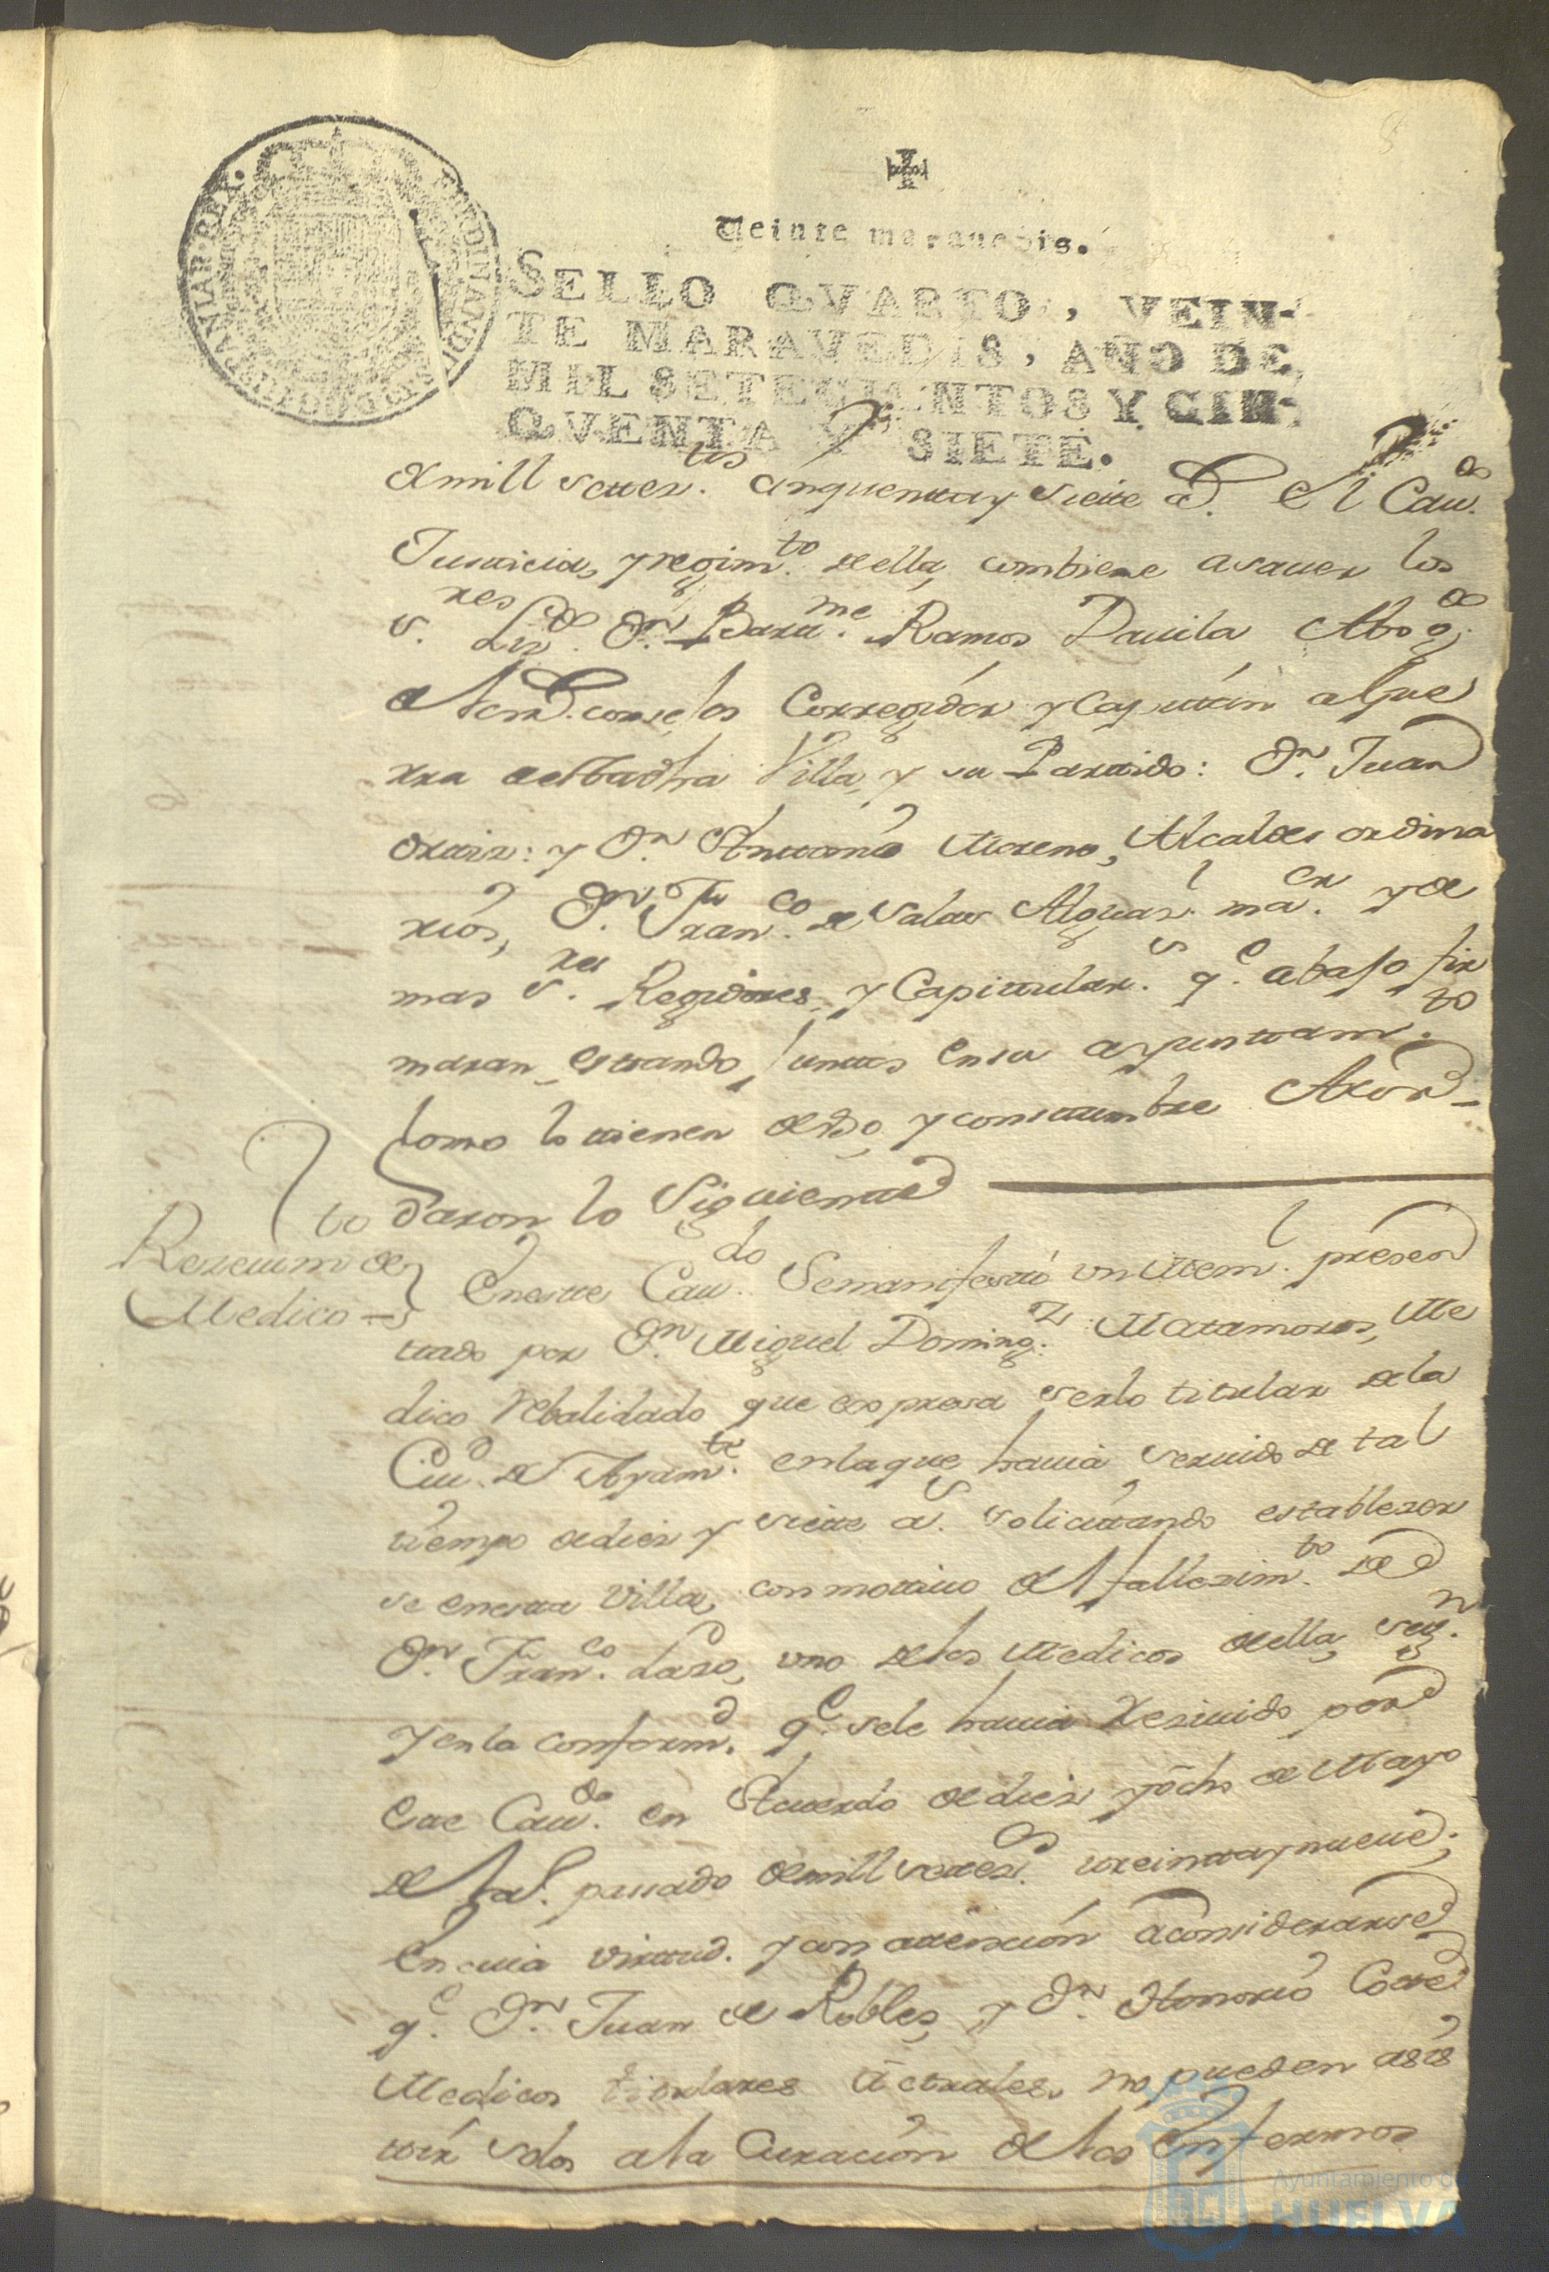 Veinte maravedis.
SELLO QVARTO, VEIN-
TE MARAVEDIS, AÑO DE
MIL SETECIENTOS Y CIN-
QVENTA Y SIETE.
FERDINANDUS VI D.G. HISPANIAR. REX.
de mill setez.tos cinquenta y siete a.s El Cav.do
Justicia, y regim.to de ella, combiene a saver los
s.res Liz.do D.n Bartt.me Ramos Davila Abog.do
de los R.s consejos Corregidor y Capittan a Gue
rra de esta dha Villa, y su Partido: D.n Juan
Ortiz: y D.n Anttonio Moreno, Alcaldes ordina
rios, D.n Fran.co de Salas Alguaz.l ma.or y de
mas s.res Regidores, y Capittular.s q.e abajo fir
maran, estando juntos en su ayuntam.to
como lo tienen de vso, y consttumbre Acor-
daron lo Siguiente
Reseuim.to de
Medico
En este Cav.do Se manifestó un Mem.l presen
tado por D.n Miguel Doming.z Matamoros, Me
dico Rebalidado que espresa serlo titular de la
Ciu.d de Ayam.te en la que havia servido de tal
tiempo de diez y siete a.s solicitando establezer
se en esta Villa, con motivo del fallezim.to de
D.n Fran.co Lazo, uno de los Medicos de ella, seg.n
y en la conform.d q.e se le havia Reziuido por
este Cav.do en Acuerdo de diez y ocho de Mayo
del a.o passado de mill setez.s treinta y nueve;
En cuia virtud. y con atencion a considerarse
q.e D.n Juan de Robles, y D.n Honorio Cortte
Medicos titulares Actuales, no pueden asis
tir solos a la Curacion de los Enfermos
Ayuntamiento de
HUELVA